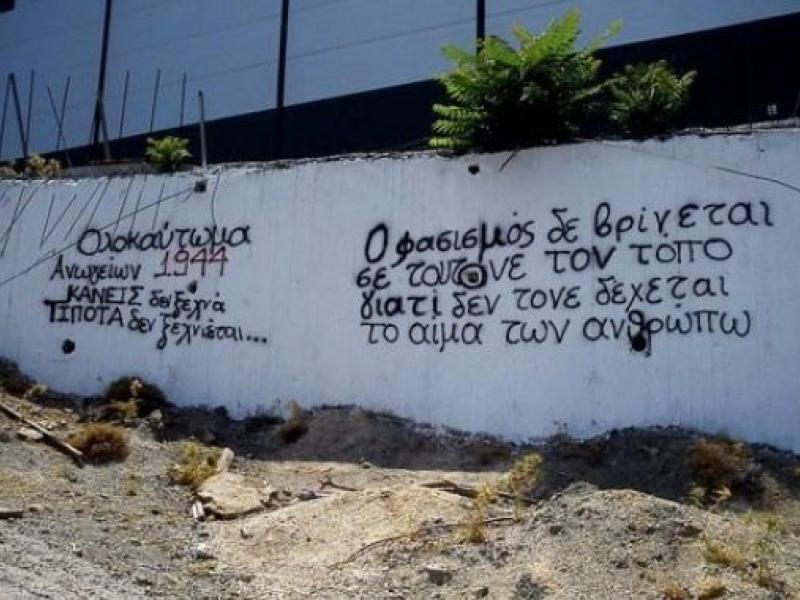 Ολοκαύτωμα
Ανωγείων 1944
ΚΑΝΕΙΣ δε ξεχνά
ΤΙΠΟΤΑ δεν ξεχνιέται...
Ο φασισμός δε βρίνεται
σε τουτονε τον τόπο
γιατί δεν τονε δέχεται
το αιμα των ανθρώπω